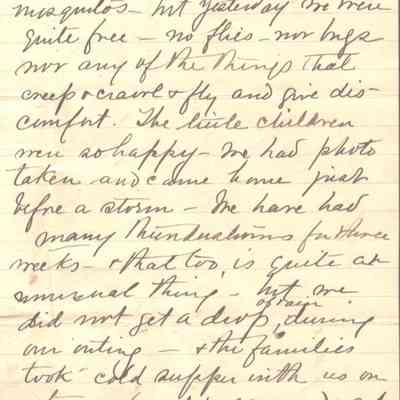 mosquitos - but yesterday we were
quite free - no flies - nor bugs
nor any of the things that
creep & crawl & fly and give dis-
comfort. The little children
were so happy - We had photo
taken and came home just
before a storm - We have had
many thunderstorms for three
weeks - & that too, is quite an
unusual thing - but we
did not get a drop of rain, during
our outing - & the families
took cold supper with us on